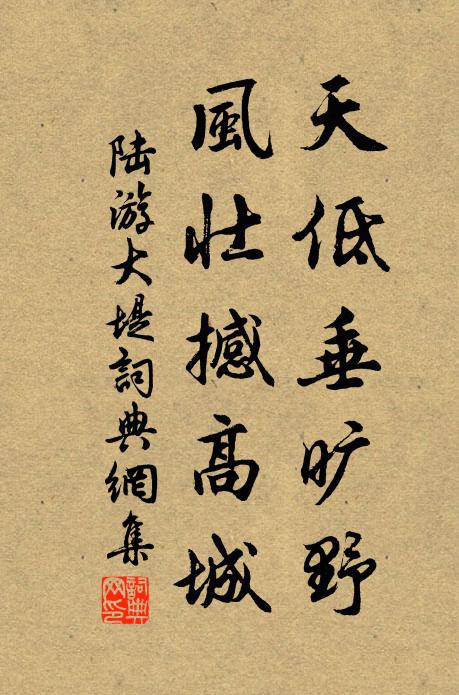 天低垂旷野
風壮撼高城
陆游大堤詞典網集
詞典網印